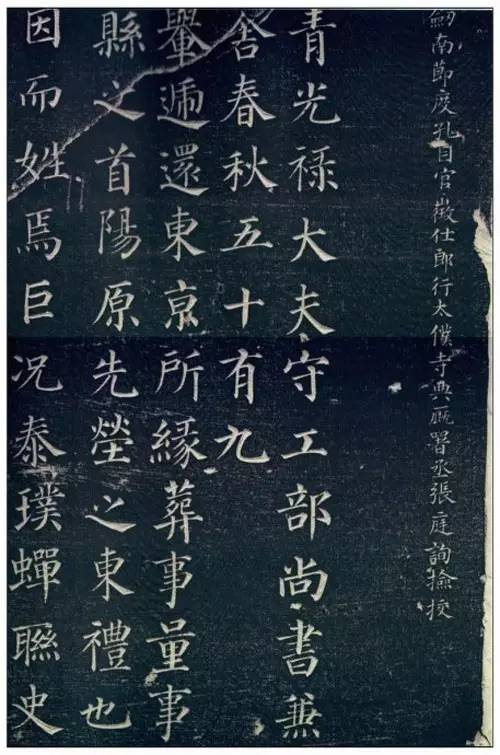 劒南節度孔目官徵仕郎行太僕寺典厩署丞張庭詢撿挍
青光禄大夫守工部尚書兼
舍春秋五十有九
轝遞還東京所緣葬事量事
縣之首陽原先塋之東禮也
因而姓焉巨况泰璞蟬聯史